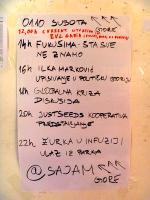 0110 SUBOTA
12,00h CURRENT
GORE
14h FUKUŠIMA - ŠTA SVE
NE ZNAMO
16h ILKA MARKOVIĆ
UPISIVANJE U POLITIČKI
18h GLOBALNA KRIZA
DISKUSIJA
20h JUSTSEEDS KOOPERATIVA
PREDSTAVLJANJE
22h ŽURKA U INFUZIJI /
ULAZ IZ PARKA
@ SAJAM
GORE